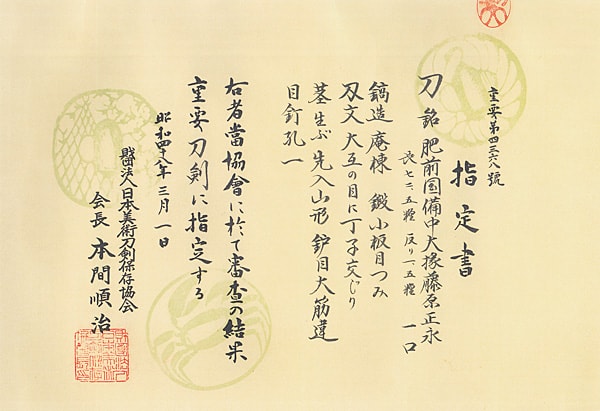 重要第四三六八號
指定書
刀 銘 肥前国備中大掾藤原正永 一口
長七三、五糎 反り一、五糎
鎬造 庵棟 鍛小板目つみ
刄文 大互の目に丁子交じり
茎生ぶ 先入山形 鑢目大筋違
目釘孔一
右者當協會に於て審査の結果
重要刀剣に指定する
昭和四十八年三月一日
財団法人日本美術刀剣保存協会
会長 本間順治